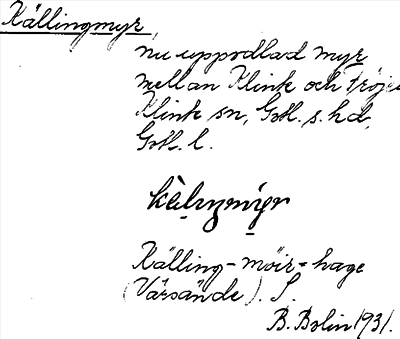 Källingmyr,
nu uppodlad myr
mellan Klink och Fröje
Klink sn, Gotl. s. hd,
Gotl. l.
Källing-möir-hage
(Värsände). S.
B. Bolin 1931.